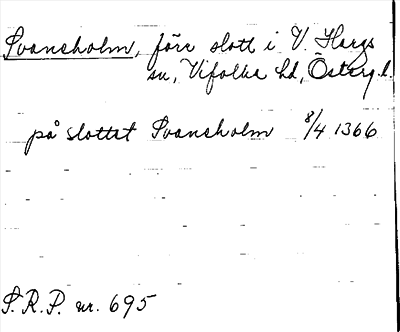 Svansholm, förr slott i V. Hargs
sn, Vifolka hd, Österg. l.
på slottet Svansholm 8/4 1366
S.R.P. nr. 695